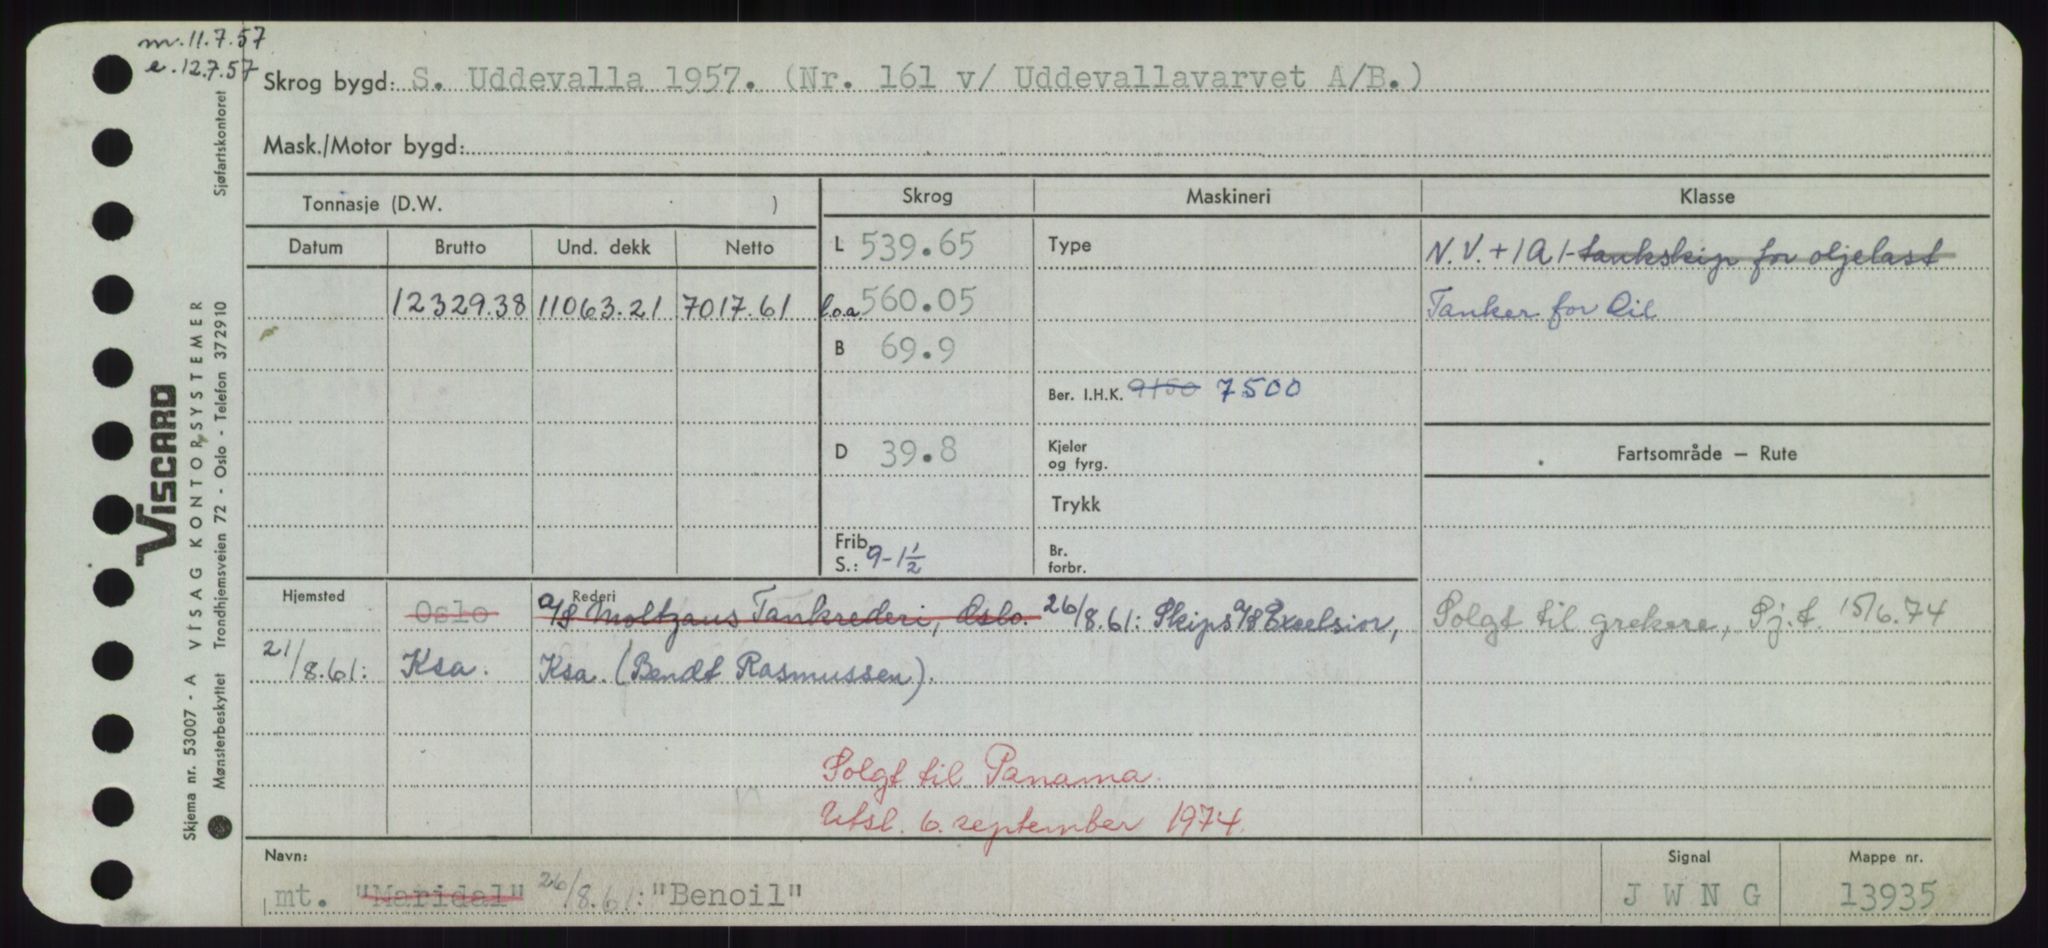 m. 11.7.57
e. 12.7.57
Skrog bygd: S. Uddevalla 1957. (Nr. 161 v/ Uddevallavarvet A/B.)
Mask./Motor bygd:
Tonnasje (D.W. )
Skrog
Maskineri
Klasse
Datum Brutto Und. dekk Netto
L 539.65
Type
N.V. + 1A1- tankskip for oljelast
12329.38 11063.21 7017.61
l.o.a. 560.05
Tanker for Oil
B 69.9
Ber. I.H.K. 9150 7500
D 39.8
Kjeler
og fyrg.
Fartsområde – Rute
Trykk
Frib.
S.: 9-1½
Br.
forbr.
Hjemsted
Rederi
Oslo
A/S Moltzaus Tankrederi, Oslo. 26/8.61: Skips A/S Excelsior,
Solgt til grekere, Sj.t. 15/6.74
21/8.61: Ksa. Ksa. (Bendt Rasmussen).
Solgt til Panama.
Utsl. 6. september 1974.
Navn:
Signal
Mappe nr.
mt. "Maridal" 26/8.61: "Benoil"
J W N G
13935
VISCARD
Skjema nr. 53007 - A VISAG KONTORSYSTEMER
Mønsterbeskyttet Trondhjemsveien 72 - Oslo - Telefon 372910 Sjøfartskontoret